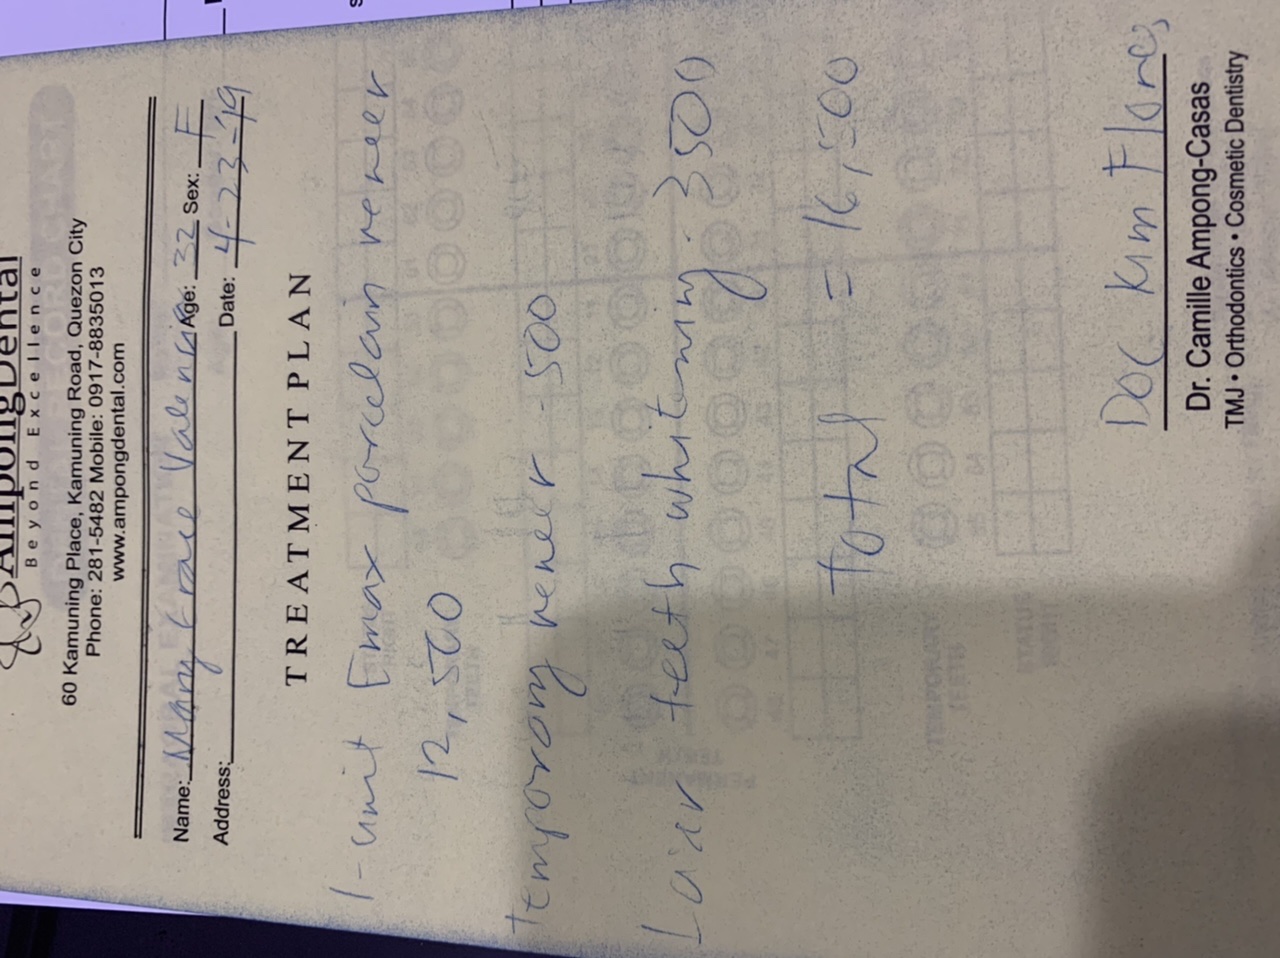 AmpongDental
Beyond Excellence
60 Kamuning Place, Kamuning Road, Quezon City
Phone: 281-5482 Mobile: 0917-8835013
www.ampongdental.com
Name: Mary Grace Valencia Age: 32 Sex: F
Address: Date: 4-23-19
TREATMENT PLAN
1-unit Emax porcelain veneer
12,500
temporary veneer - 500
Laisr teeth whitening. 3500
Total = 16,500
Doc Kim Flores
Dr. Camille Ampong-Casas
TMJ • Orthodontics • Cosmetic Dentistry